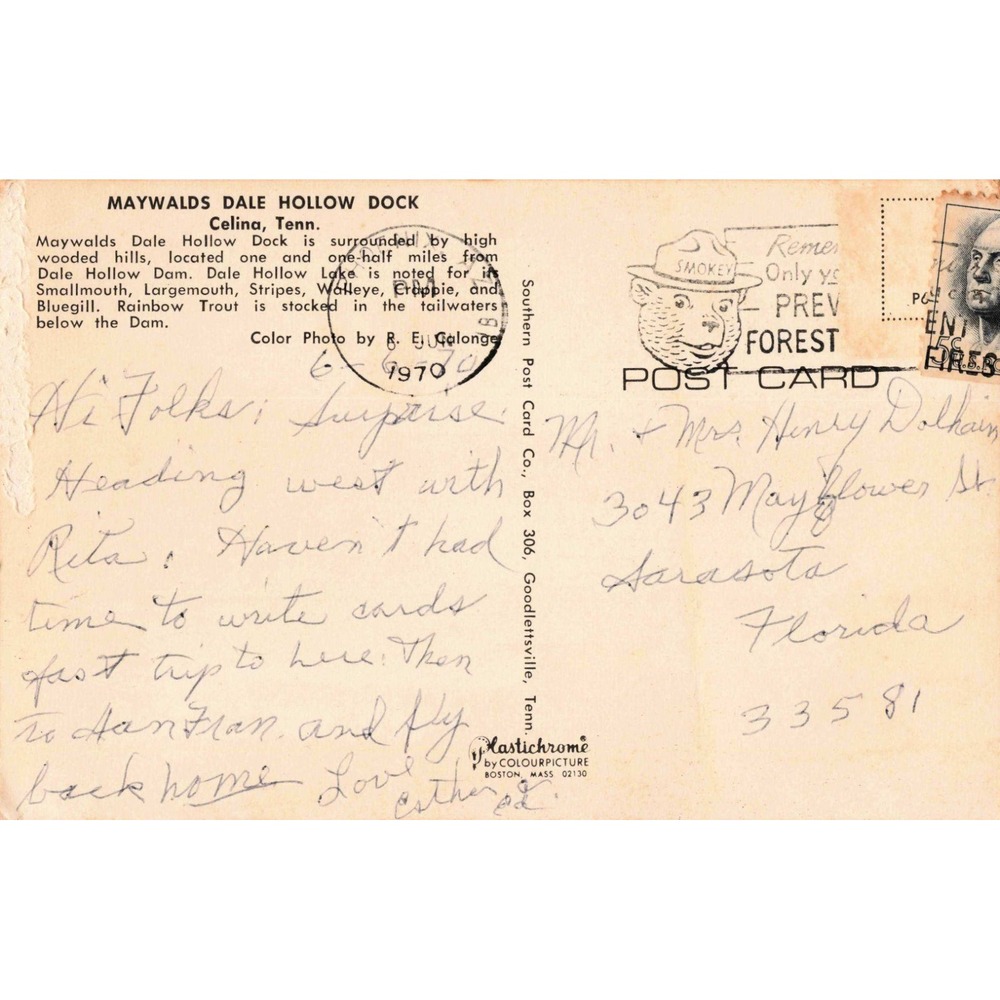 MAYWALDS DALE HOLLOW DOCK
Celina, Tenn.
Maywalds Dale Hollow Dock is surrounded by high
wooded hills, located one and one-half miles from
Dale Hollow Dam. Dale Hollow Lake is noted for its
Smallmouth, Largemouth, Stripes, Walleye, Crappie, and
Bluegill. Rainbow Trout is stocked in the tailwaters
below the Dam.
Color Photo by R. E. Calonge
PM
6 JUN
1970
6-6-70
Hi Folks; Surprise.
Heading west with
Rita. Haven't had
time to write cards
fast trip to here. Then
to San Fran. and fly
back home Love
Esther & Ed.
Southern Post Card Co., Box 306, Goodlettsville, Tenn.
Plastichrome®
by COLOURPICTURE
BOSTON, MASS 02130
SMOKEY
Remem
Only yo
PREV
FOREST
ENT
FIRES
5c
POST CARD
Mr. + Mrs. Henry Dolhain
3043 Mayflower St.
Sarasota
Florida
33581